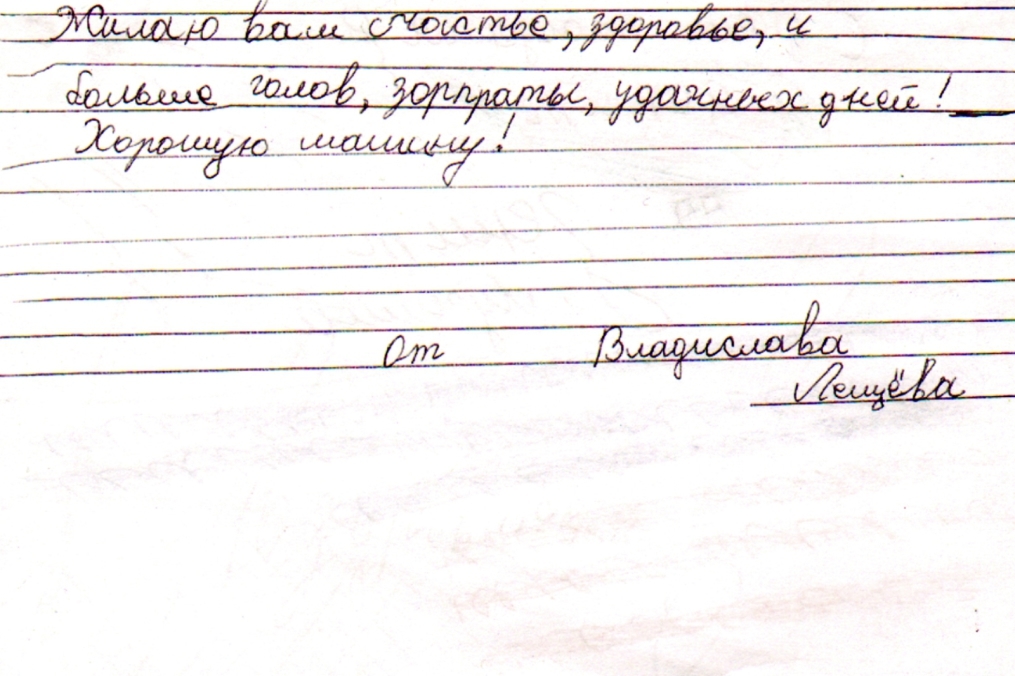 Жилаю вам счастье, здоровье, и
больше голов, зорпраты, удачных дней!
Хорошую машину!
От Владислава
Лещёва